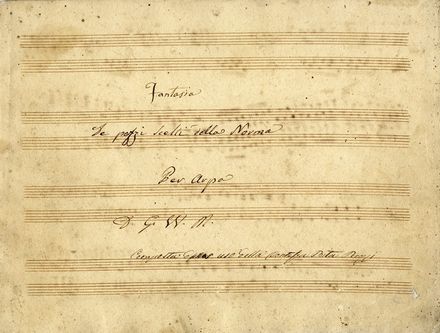 Fantasia
De pezzi scelti della Norma
Per Arpa
D. G. W. R.
Composta per uso della